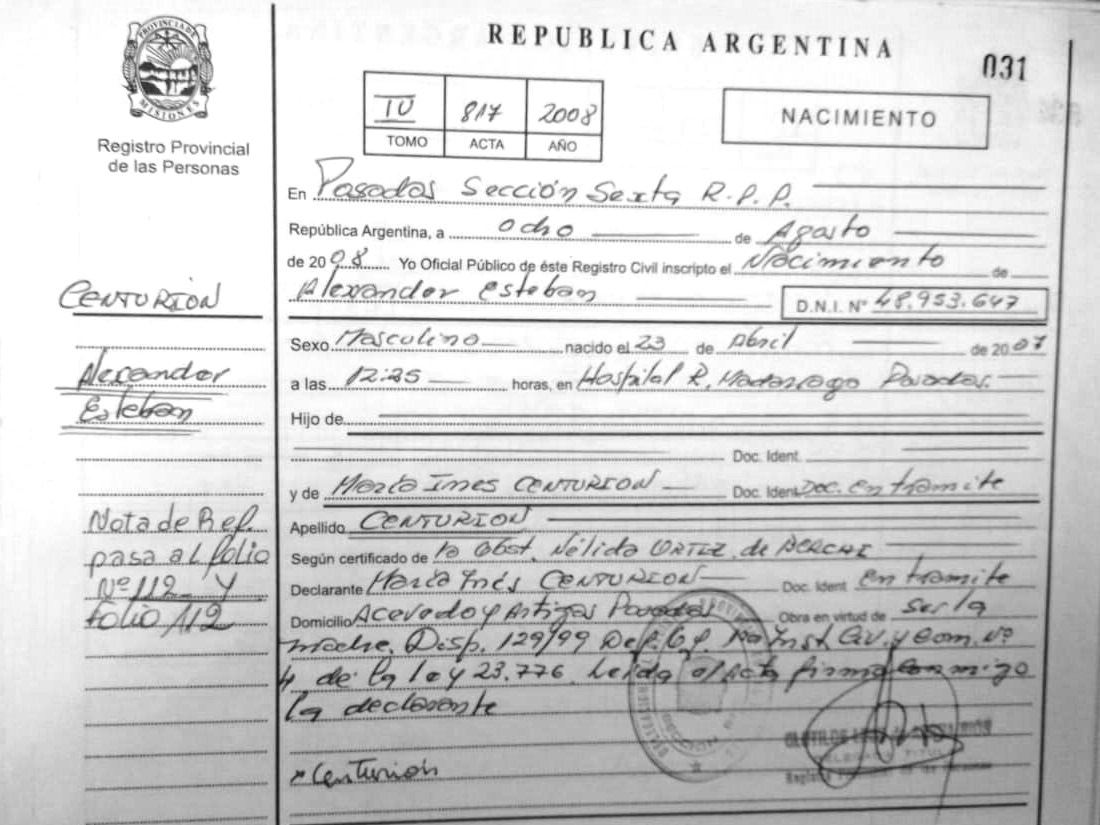 PROVINCIA DE
MISIONES
Registro Provincial
de las Personas
REPUBLICA ARGENTINA
031
IV 817 2008
TOMO ACTA AÑO
NACIMIENTO
En Posadas Sección Sexta R.P.P.
República Argentina, a ocho de Agosto
de 2008 Yo Oficial Público de éste Registro Civil inscripto el Nacimiento de
Alexander Esteban D.N.I. Nº 48.953.647
Sexo Masculino nacido el 23 de Abril de 2007
a las 12:25 horas, en Hospital R. Madariaga Posadas.
Hijo de
Doc. Ident.
y de María Ines CENTURION Doc. Ident. Doc. en tramite
Apellido CENTURION
Según certificado de la Obst. Nélida ORTIZ de
Declarante María Inés CENTURION Doc. Ident en tramite
Domicilio Acevedo y Artigas Posadas Obra en virtud de ser la
madre. Disp. 129/99 Def. Of. 1ra Inst. Civ. y Com. Nº
4 de la ley 23.776. Leída el Acta firma conmigo
la declarante
Centurion
CENTURION
Alexander
Esteban
Nota de Ref.
pasa al folio
Nº 112 y
folio 112